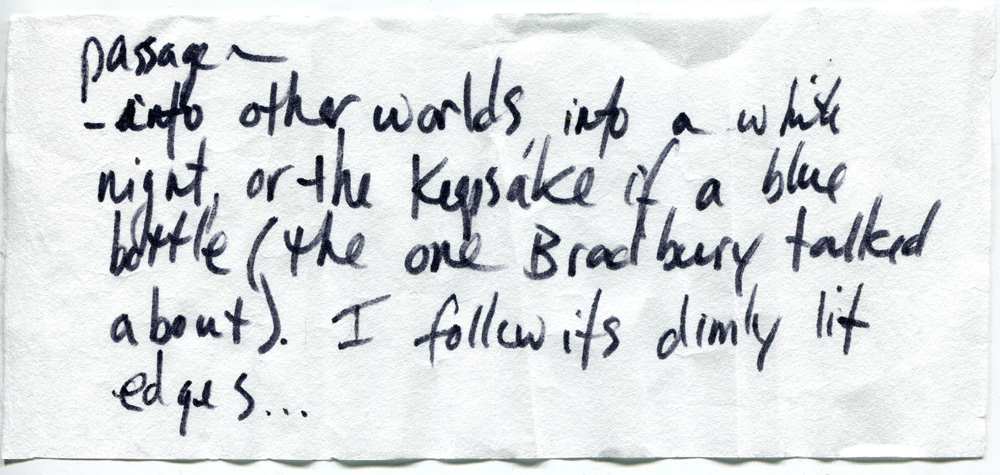 passage ~
- into other worlds, into a white
night, or the keepsake if a blue
bottle (the one Bradbury talked
about). I follow its dimly lit
edges...